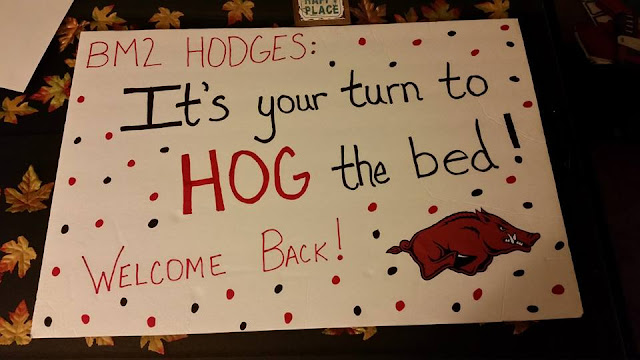 HAPPY
PLACE
BM2 HODGES:
It's your turn to
HOG the bed!
WELCOME BACK!